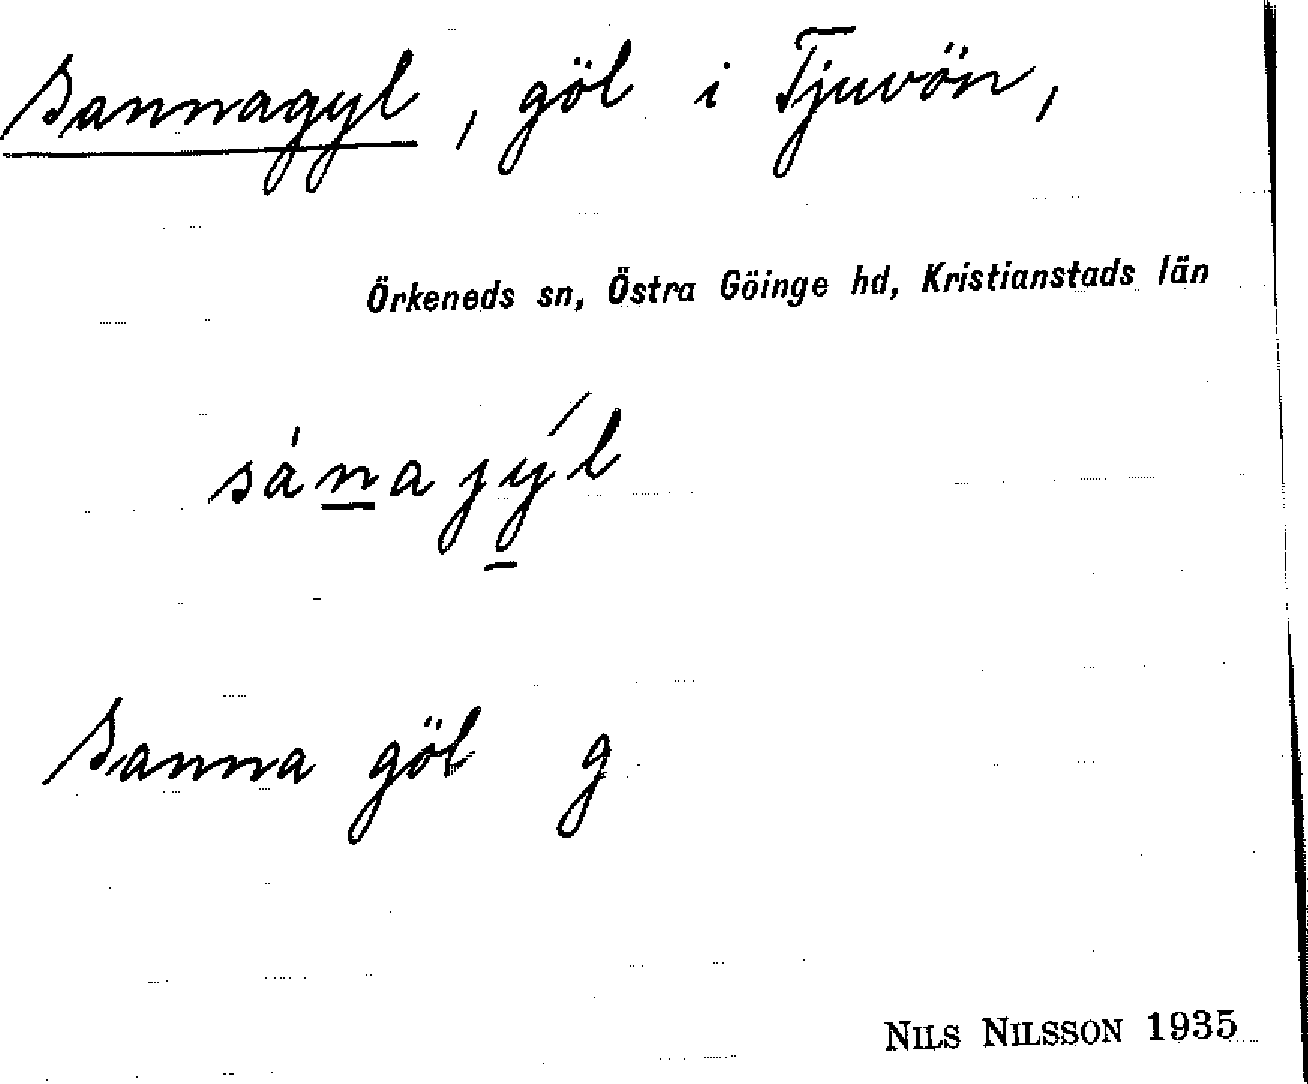 Sannagyl, göl i Tjuvön,
Örkeneds sn, Östra Göinge hd, Kristianstads län
sánajýl
Sanna göl g
NILS NILSSON 1935